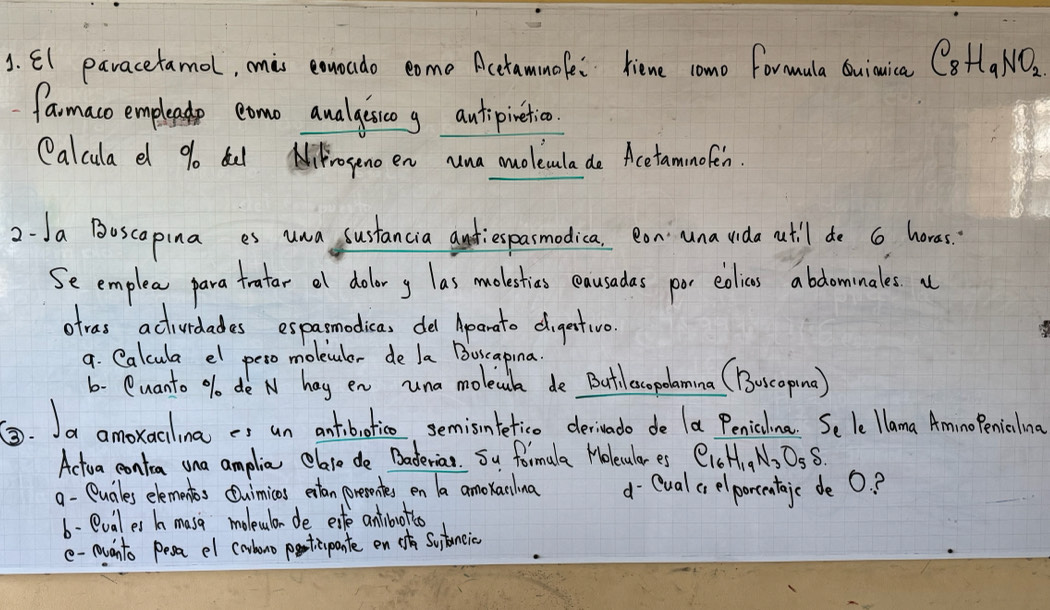 1. El paracetamol, más conocido como Acetaminofei tiene como formula Quimica C8H9NO2.
- farmaco empleado como analgésico y antipirético.
Calcula el % del Nitrogeno en una molécula de Acetaminofén.
2- La Buscapina es una sustancia antiespasmodica, con una vida util de 6 horas.
Se emplea para tratar el dolor y las molestias causadas por cólicos abdominales. u
otras actividades espasmodicas del Aparato digestivo.
a. Calcula el peso molécular de la Buscapina.
b- Cuanto % de N hay en una molécula de Butilescopolamina (Buscapina)
3- La amoxacilina es un antibiotico semisintetico derivado de la Penicilina. Se le llama AminoPenicilina
Actua contra una amplia Clase de Bacterias. Su fórmula Molecular es C16H19N3O5S.
a- Cuáles elementos Quimicos estan presentes en la amoxacilina
d- Cual es el porcentaje de O.?
b- Cuál es la masa molecular de este antibiotico
c- cuánto pesa el carbono participante en esta Sustancia